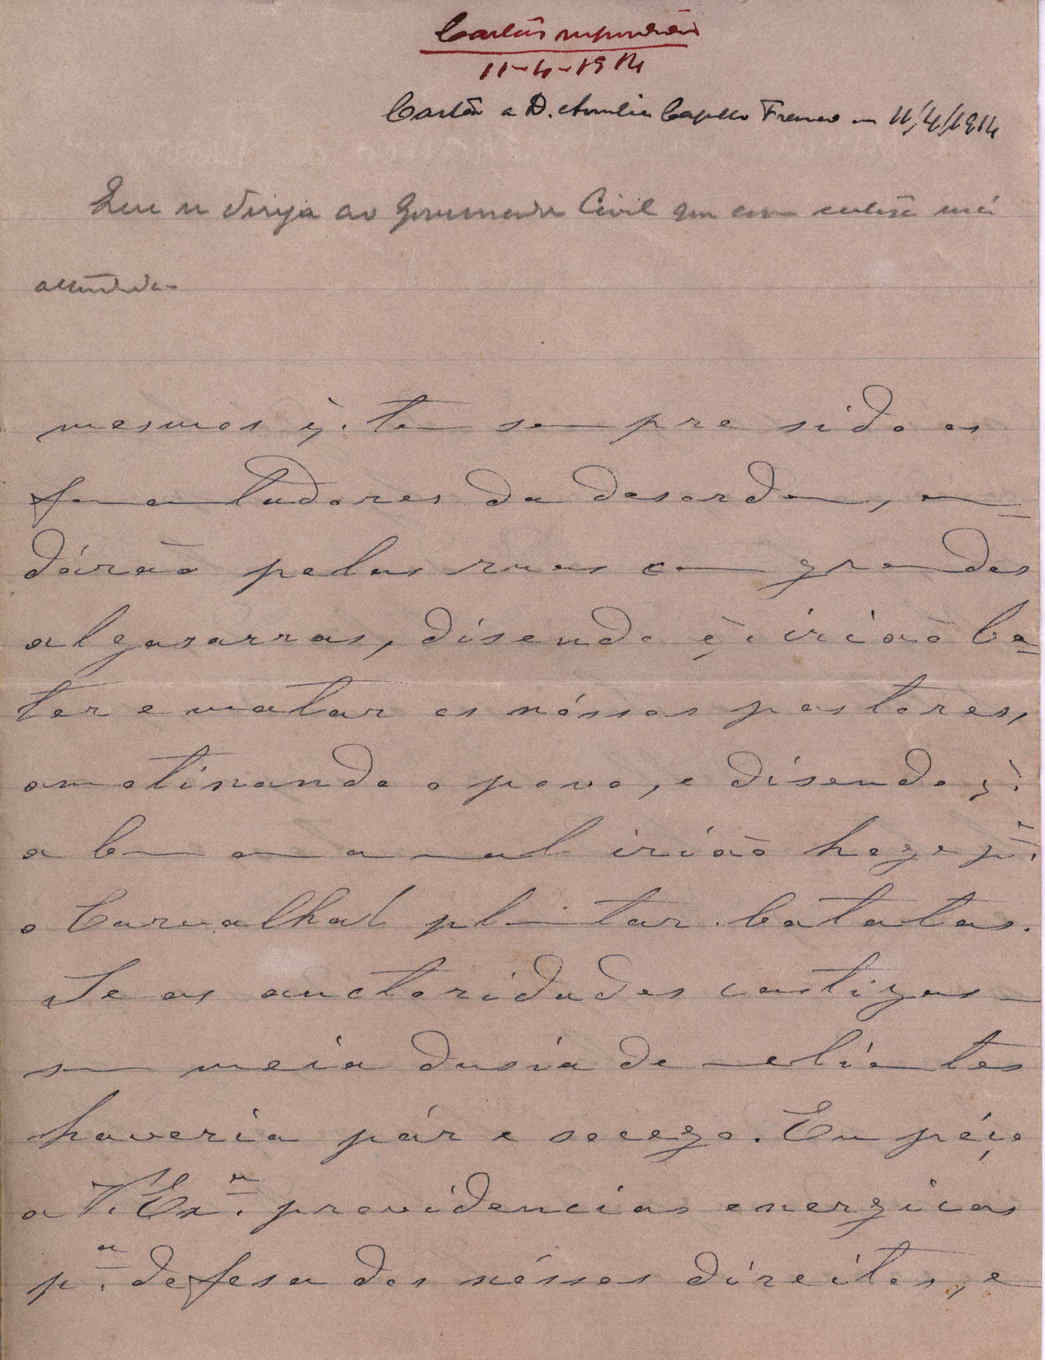 Cartão
11-4-1914
Cartão a D. Amelia Capello Franco em 11/4/1914
Que se dirija ao Governador Civil que será
attendida
mesmos q. tem sempre sido os
fomentadores da desordem, an=
dárão pelas ruas com grandes
algasarras, disendo q. irião ba=
ter e matar os nóssos pastores,
amotinando o povo, e disendo q.
a bem ou a mal irião hoje p.ª
o Carvalhal plantar batatas.
Se as auctoridades castigas-
sem meia dusia de meliantes
haveria páz e socego. Eu péço
a V. Ex.ª providencias energicas
p.ª defesa dos nóssos direitos, e